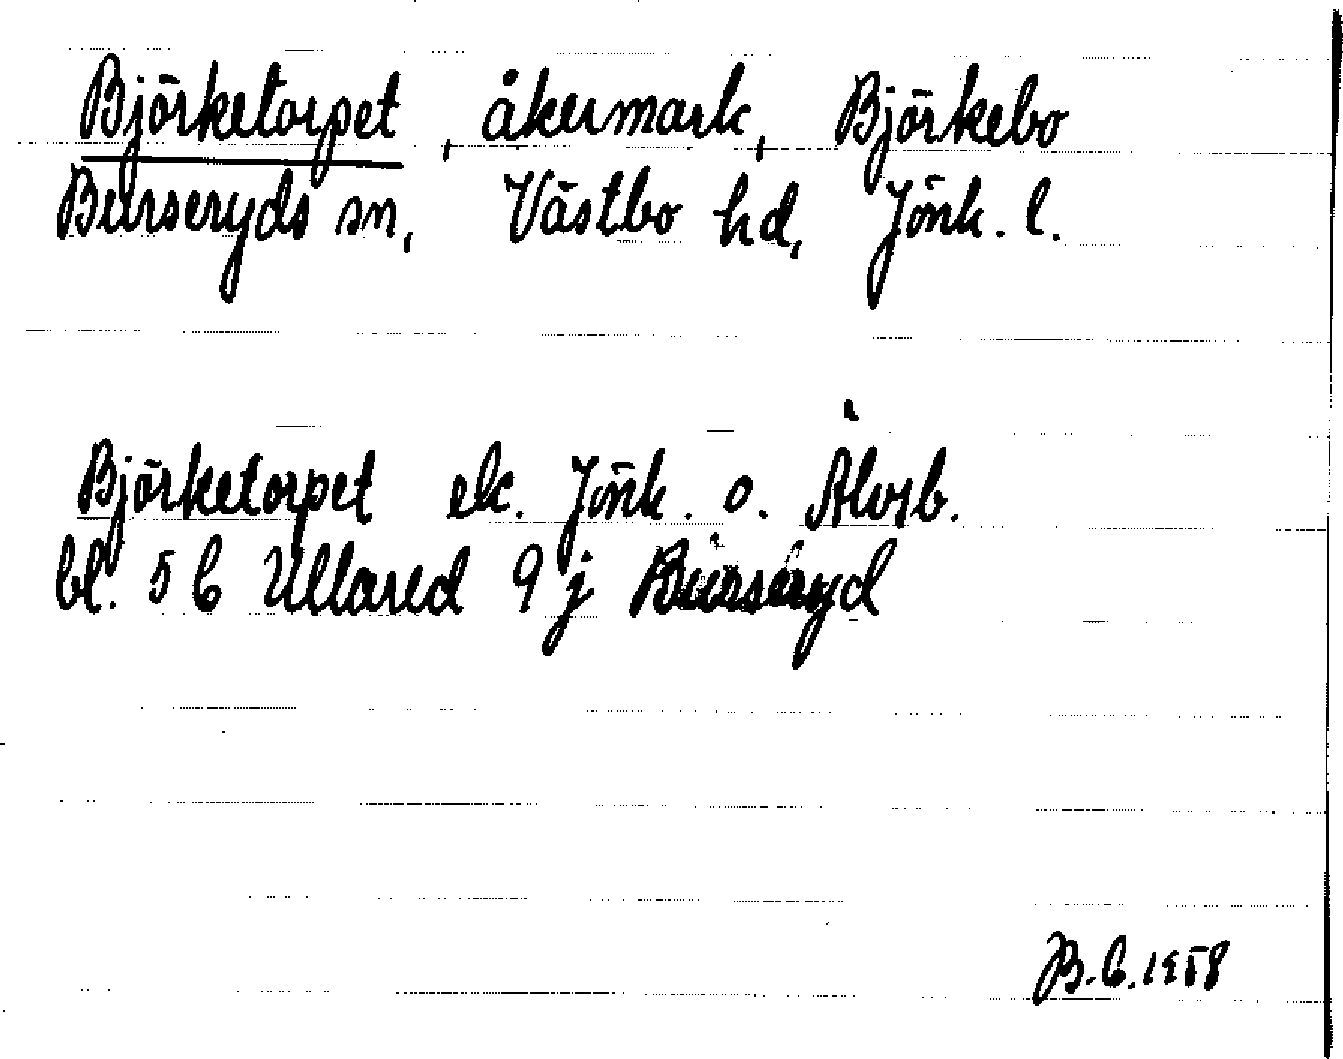 Björketorpet, åkermark, Björkebo
Burseryds sn, Västbo hd, Jönk. l.
Björketorpet ek. Jönk. o. Älvsb.
bl. 5 C Ullared 9 j Burseryd
B.C. 1958